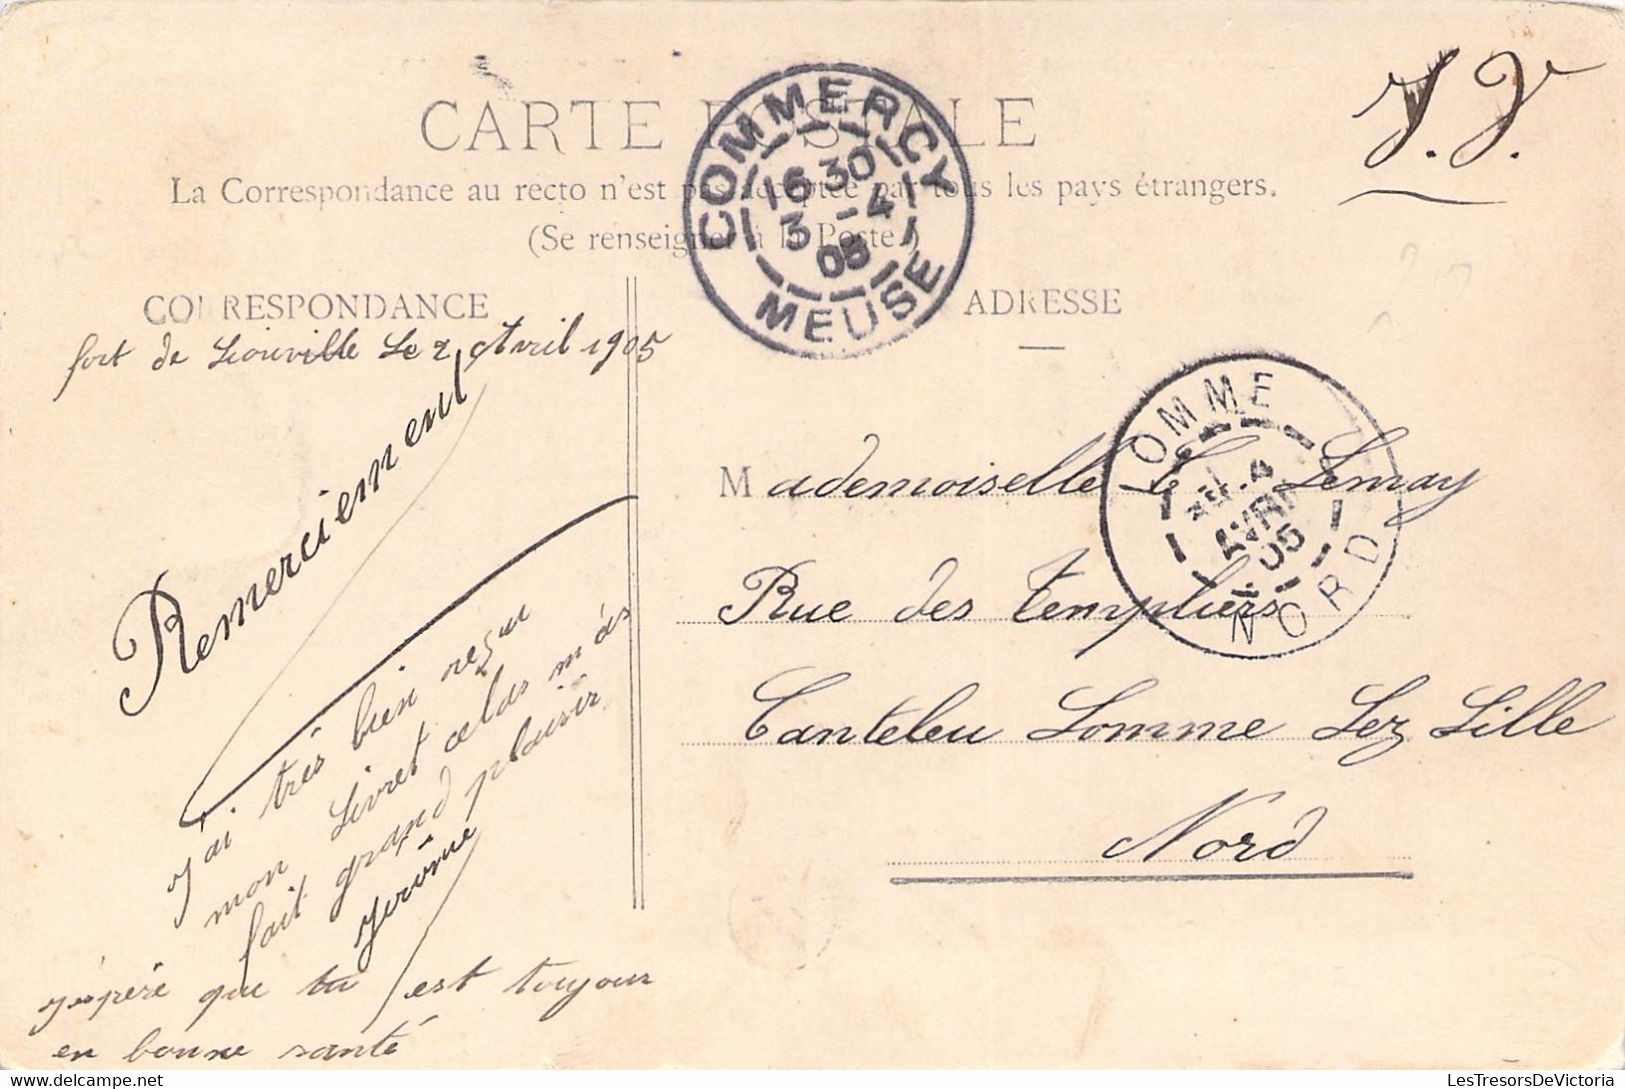 CARTE POSTALE
La Correspondance au recto n'est pas acceptée par tous les pays étrangers.
(Se renseigner à la Poste.)
S. V.
COMMERCY
16 30
3 - 4
05
MEUSE
CORRESPONDANCE
ADRESSE
fort de Liouville Le 2 Avril 1905
Remerciement
j'ai très bien reçu
mon Livret celas m'as
fait grand plaisir
Jérôme
j'éspère que tu est toujour
en bonne santé
LOMME
4
AVRIL
05
NORD
Mademoiselle Lemay
Rue des templiers
Canteleu Lomme Lez Lille
Nord
LesTresorsDeVictoria